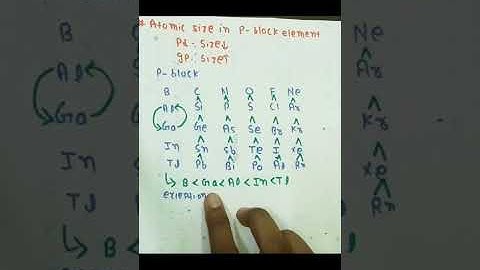 * Atomic size in P-block element
Pd - size↓
gp - size↑
P-block
B C N O F Ne
Al Si P S Cl Ar
Ga Ge As Se Br Kr
In Sn Sb Te I Xe
Tl Pb Bi Po At Rn
↳ B < Ga < Al < In < Tl
B
Al
Ga
In
Tl
B
Ne
^
Ar
^
Kr
^
Xe
^
Rn